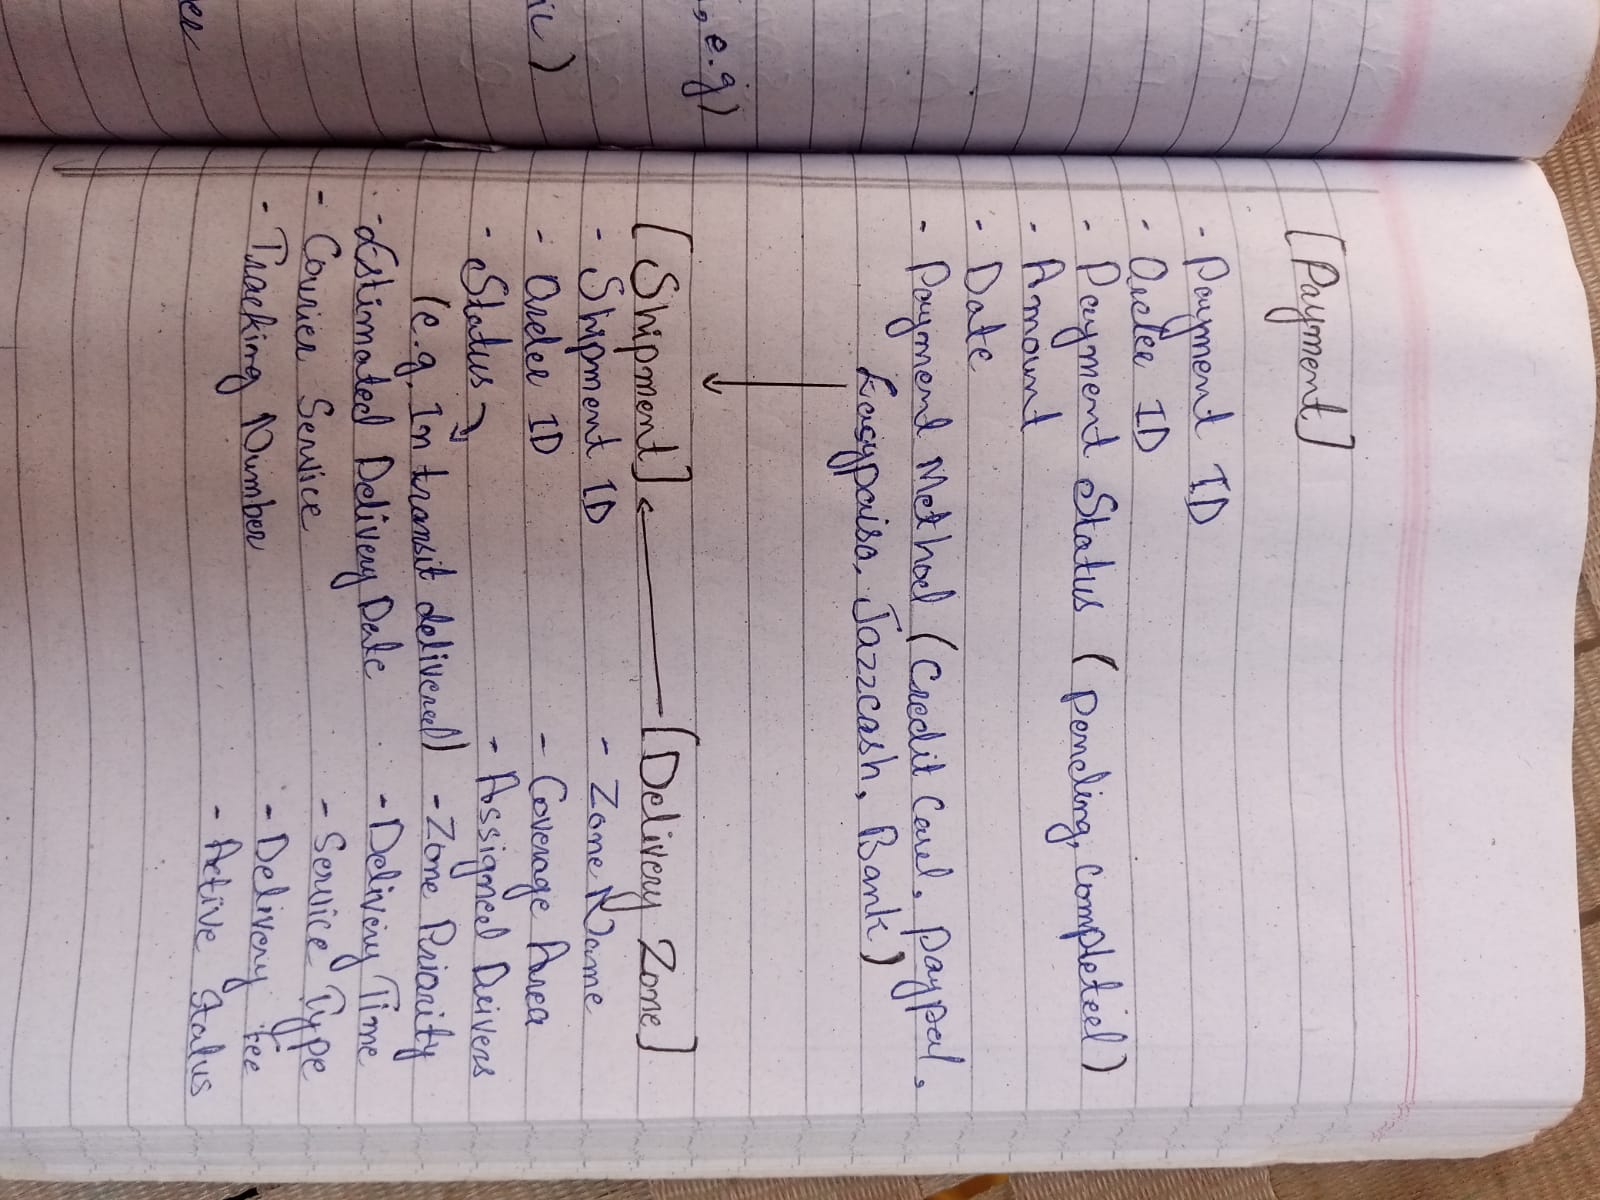 [Payment]
- Payment ID
- Order ID
- Payment Status (pending, completed)
- Amount
- Date
- Payment Method (Credit Card, paypal,
Easypaisa, Jazzcash, Bank)
[Shipment] ← [Delivery Zone]
- Shipment ID
- Order ID
- Status
(e.g. In transit delivered)
- Estimated Delivery Date
- Courier Service
- Tracking Number
- Zone Name
- Coverage Area
- Assigned Drivers
- Zone Priority
- Delivery Time
- Service Type
- Delivery Fee
- Active Status
, e.g)